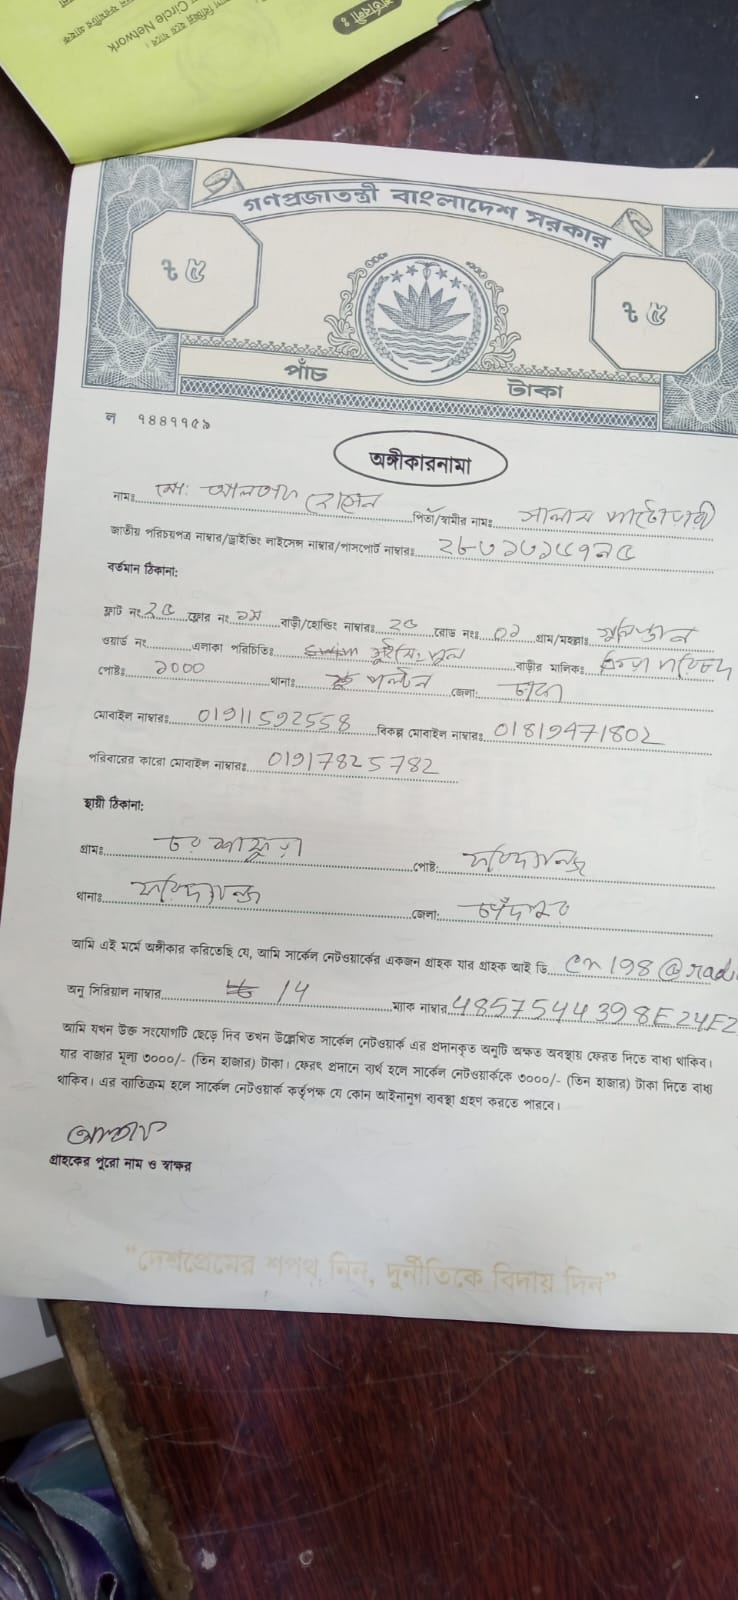 Circle Network
গণপ্রজাতন্ত্রী বাংলাদেশ সরকার
৳ ৫
৳ ৫
পাঁচ টাকা
ল ৭৪৪৭৭৫৯
অঙ্গীকারনামা
নামঃ মোঃ আলতাফ হোসেন পিতা/স্বামীর নামঃ সালাম পাটোয়ারী
জাতীয় পরিচয়পত্র নাম্বার/ড্রাইভিং লাইসেন্স নাম্বার/পাসপোর্ট নাম্বারঃ
বর্তমান ঠিকানা:
ফ্লাট নং ২৫ ফ্লোর নং ১ম বাড়ী/হোল্ডিং নাম্বারঃ ২৫ রোড নংঃ ০১ গ্রাম/মহল্লাঃ গুলিস্তান
ওয়ার্ড নং এলাকা পরিচিতিঃ সুইমিং পুল বাড়ীর মালিকঃ
পোষ্টঃ ১০০০ থানাঃ পল্টন জেলা: ঢাকা
মোবাইল নাম্বারঃ 01911592558 বিকল্প মোবাইল নাম্বারঃ 01819471802
পরিবারের কারো মোবাইল নাম্বারঃ 01917825782
স্থায়ী ঠিকানা:
গ্রামঃ পোষ্ট: ফরিদগঞ্জ
থানাঃ ফরিদগঞ্জ জেলা: চাঁদপুর
আমি এই মর্মে অঙ্গীকার করিতেছি যে, আমি সার্কেল নেটওয়ার্কের একজন গ্রাহক যার গ্রাহক আই ডি cn198@rad
অনু সিরিয়াল নাম্বার 14 ম্যাক নাম্বার 48575444398E24E2
আমি যখন উক্ত সংযোগটি ছেড়ে দিব তখন উল্লেখিত সার্কেল নেটওয়ার্ক এর প্রদানকৃত অনুটি অক্ষত অবস্থায় ফেরত দিতে বাধ্য থাকিব।
যার বাজার মূল্য ৩০০০/- (তিন হাজার) টাকা। ফেরৎ প্রদানে ব্যর্থ হলে সার্কেল নেটওয়ার্ককে ৩০০০/- (তিন হাজার) টাকা দিতে বাধ্য
থাকিব। এর ব্যতিক্রম হলে সার্কেল নেটওয়ার্ক কর্তৃপক্ষ যে কোন আইনানুগ ব্যবস্থা গ্রহণ করতে পারবে।
আলতাফ
গ্রাহকের পুরো নাম ও স্বাক্ষর
“দেশপ্রেমের শপথ নিন, দুর্নীতিকে বিদায় দিন”